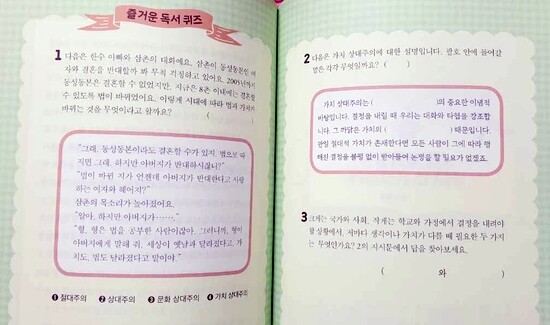 즐거운 독서 퀴즈
1 다음은 한수 아빠와 삼촌의 대화예요. 삼촌이 동성동본인 여
자와 결혼을 반대할까 봐 무척 걱정하고 있어요. 2005년까지
동성동본은 결혼할 수 없었지만, 지금은 8촌 이내에는 결혼할
수 있도록 법이 바뀌었어요. 이렇게 시대에 따라 법과 가치가
바뀌는 것을 무엇이라고 할까요? ( )
"그래, 동성동본이라도 결혼할 수가 있지. 법으로 따
지면 그래. 하지만 아버지가 반대하시잖니?"
"법이 바뀐 지가 언젠데 아버지가 반대한다고 사랑
하는 여자와 헤어지?"
삼촌의 목소리가 높아졌어요.
"알아, 하지만 아버지가……."
"형, 형은 법을 공부한 사람이잖아. 그러니까, 형이
아버지에게 말해 줘. 세상이 옛날과 달라졌다고. 가
치도, 법도 달라졌다고 말이야."
❶ 절대주의 ❷ 상대주의 ❸ 문화 상대주의 ❹ 가치 상대주의
2 다음은 가치 상대주의에 대한 설명입니다. 괄호 안에 들어갈
말은 각각 무엇일까요? ( )
가치 상대주의는 ( )의 중요한 이념적
바탕입니다. 결정을 내릴 때 우리는 대화와 타협을 강조합
니다. 그 까닭은 가치의 ( ) 때문입니다.
만일 절대적 가치가 존재한다면 모든 사람이 그에 따라 행
해진 결정을 불평 없이 받아들여 논쟁을 할 필요가 없겠죠.
3 크게는 국가와 사회, 작게는 학교와 가정에서 결정을 내려야
할 상황에서, 저마다 생각이나 가치가 다를 때 필요한 두 가지
는 무엇인가요? 2의 지시문에서 답을 찾아보세요.
( 와 )